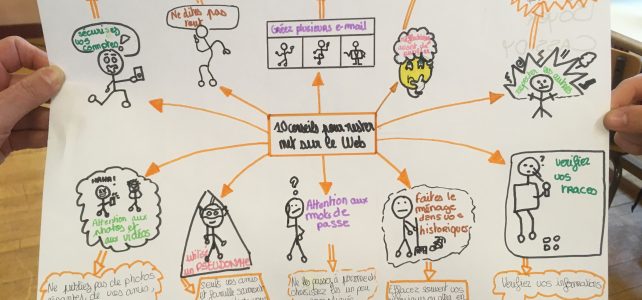 sécurisez
vos
comptes
Ne dites pas
tout
Créez plusieurs e-mail
respecter les autres
10 conseils pour rester
net sur le Web
HAHA!
Attention aux
photos et
aux vidéos
utilisez
un PSEUDONYME
Attention aux
mots de
passe
Faites le
ménage
dans vos
historiques
Vérifiez
vos
TRACES
Ne publiez pas de photos
gênantes de vos amis
seuls vos amis
et famille
Ne les passez à personne
choisissez les un peu
Effacez souvent vos
Vérifiez vos informations